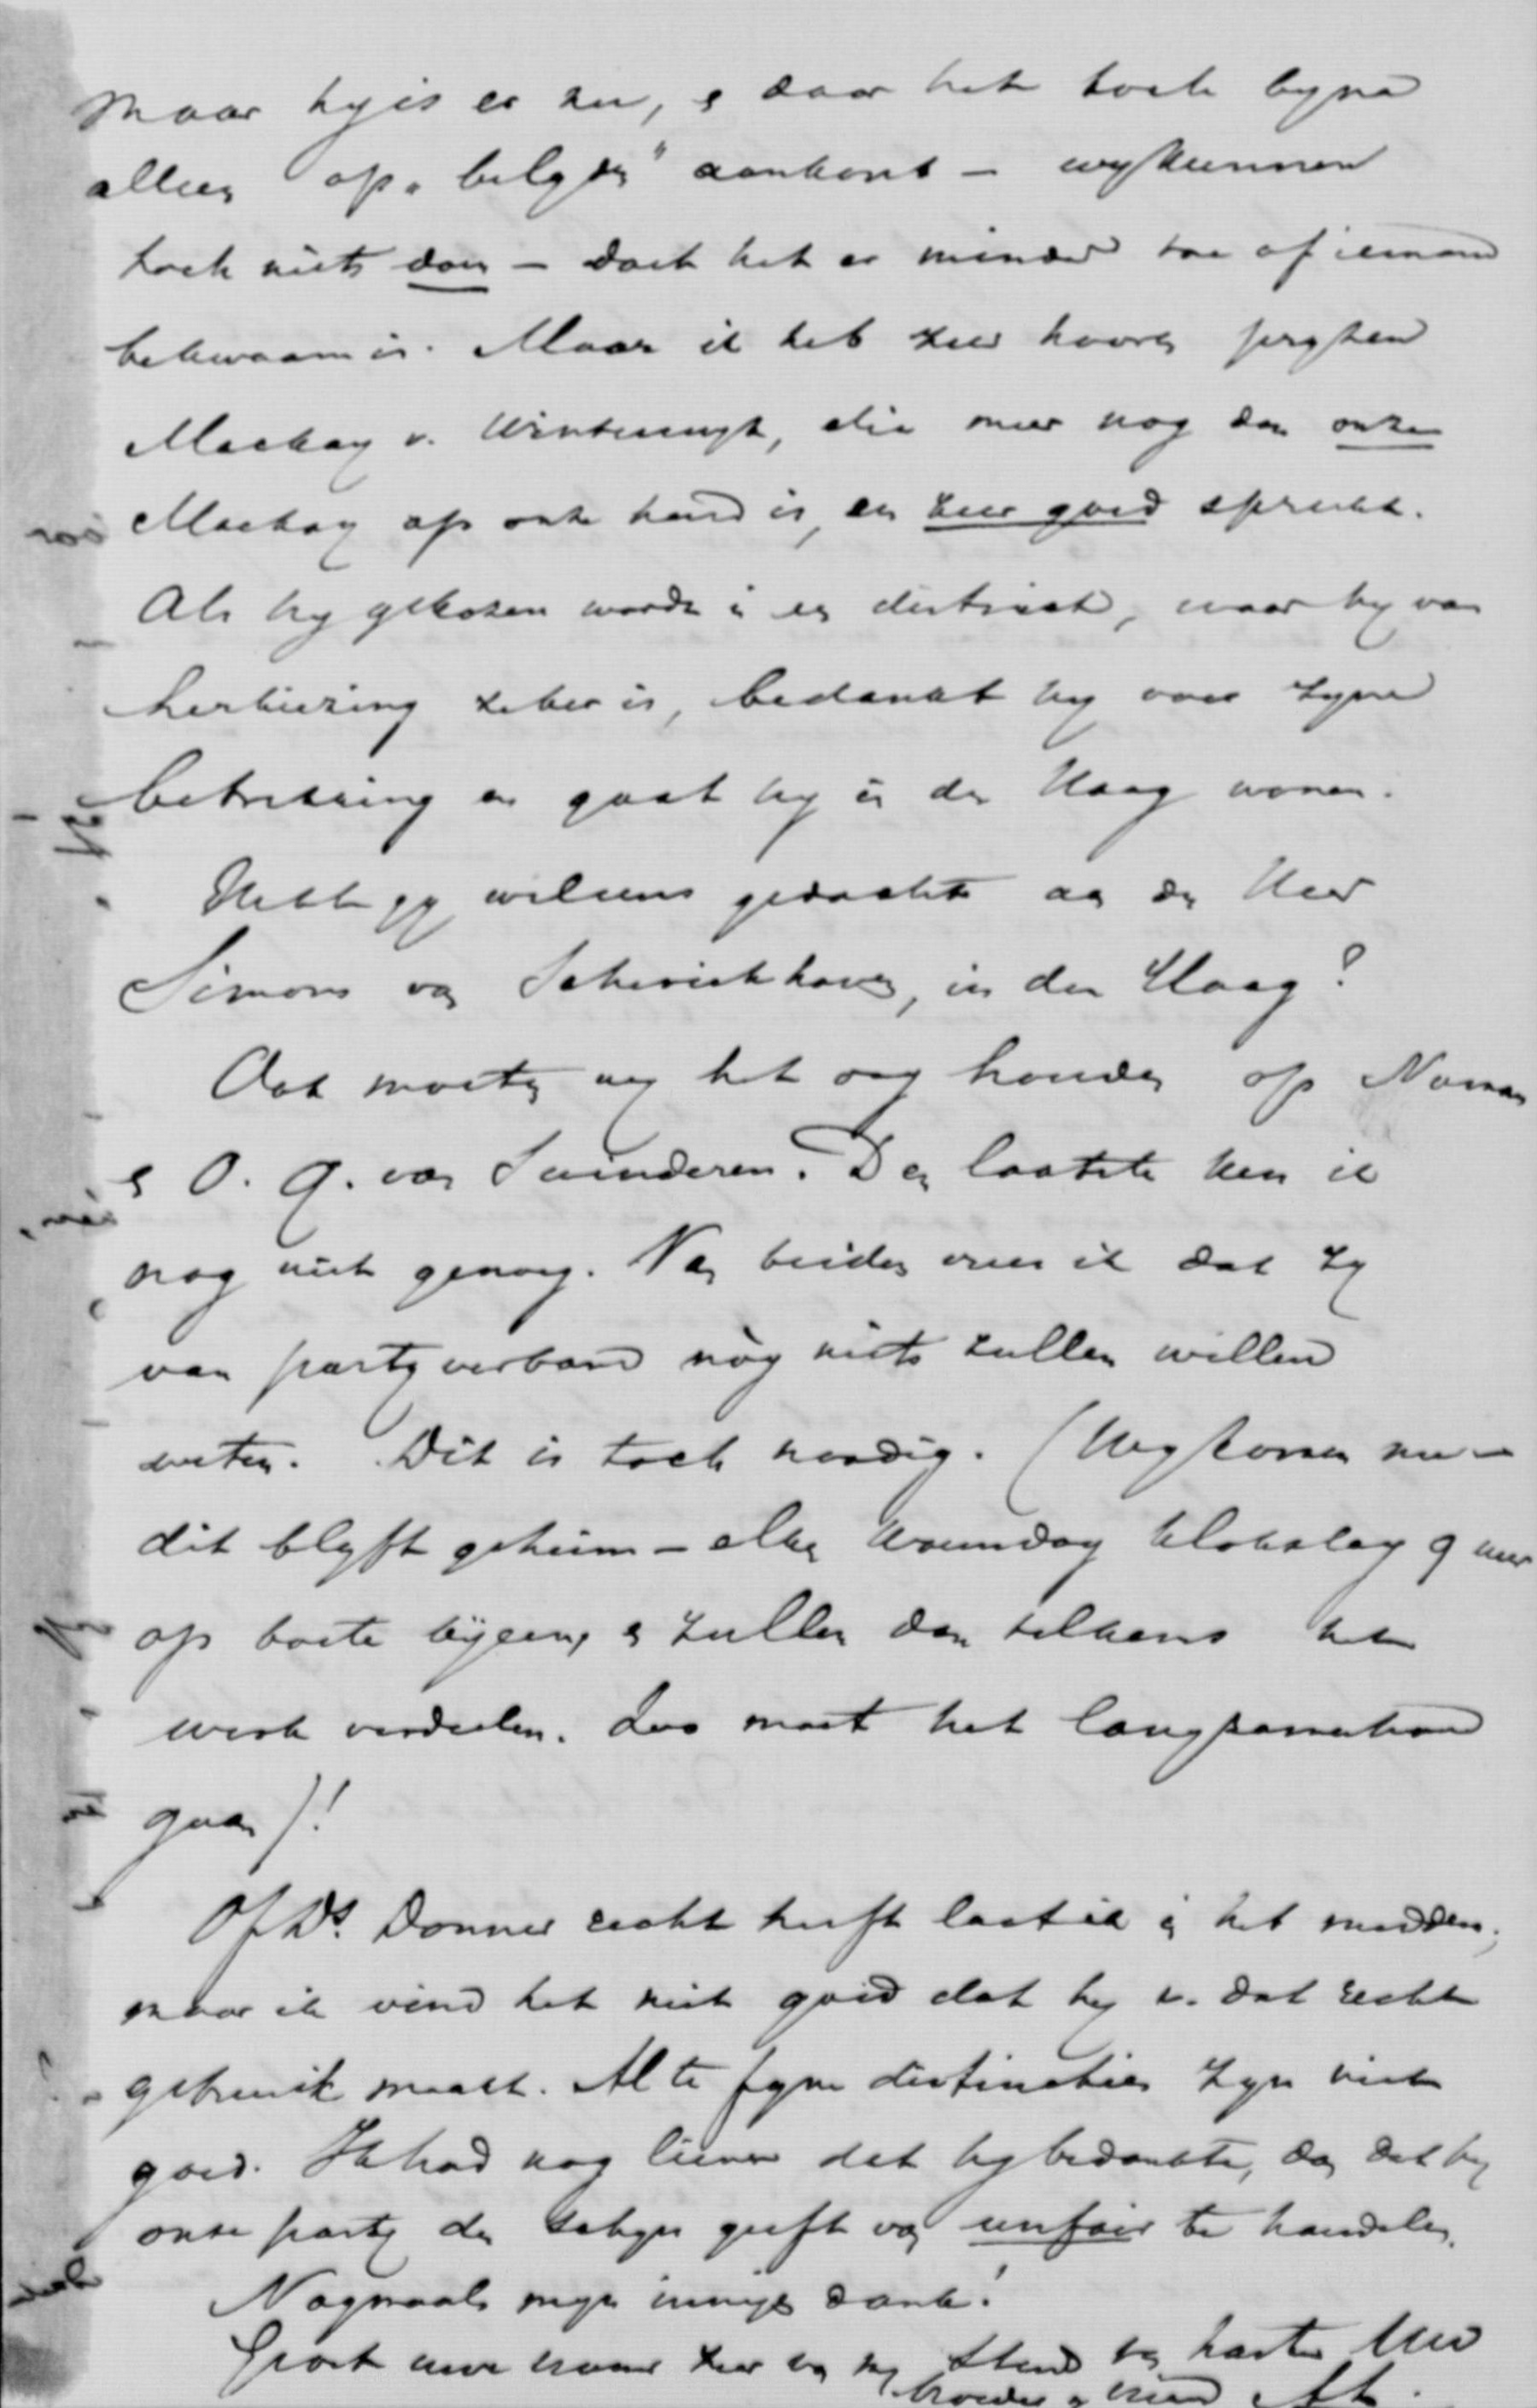 Maar hy is er nu, & daar het toch byna
alleen op „belyden" aankomt – wy kunnen
toch niets doen – doet het er minder toe of iemand
bekwaam is. Maar ik heb zeer hooren pryzen
Mackay v. Winterswyk, die meer nog dan onze
Mackay op onze hand is, en zeer goed spreekt.
Als hy gekozen wordt in een district, waar hy van
herkiezing zeker is, bedankt hy voor zyne
betrekking en gaat hy in den Haag wonen.
Hebt gy weleens gedacht aan den Heer
Simons van Schoonhoven, in den Haag?
Ook moeten wy het oog houden op Noman
& O. Q. van Swinderen. Den laatste ken ik
nog niet genoeg. Van beiden vrees ik dat zy
van partyverband nòg niets zullen willen
weten. Dit is toch noodig. (Wy komen nu –
dit blyft geheim – elken Woensdag klokslag 9 uur
op byeen, & zullen dan telkens het
werk verdeelen. Zoo moet het langzamerhand
gaan)!
Of Ds. Donner recht heeft laat ik in het midden;
maar ik vind het niet goed dat hy v. dat recht
gebruik maakt. Al te fyne distincties zyn niet
goed. Ik had nog liever dat hy bedankte, dan dat hy
onze party den schyn geeft van unfair te handelen.
Nogmaals myn innigen dank!
Groet uwe vrouw zeer van my steeds van harte Uw
broeder & vriend